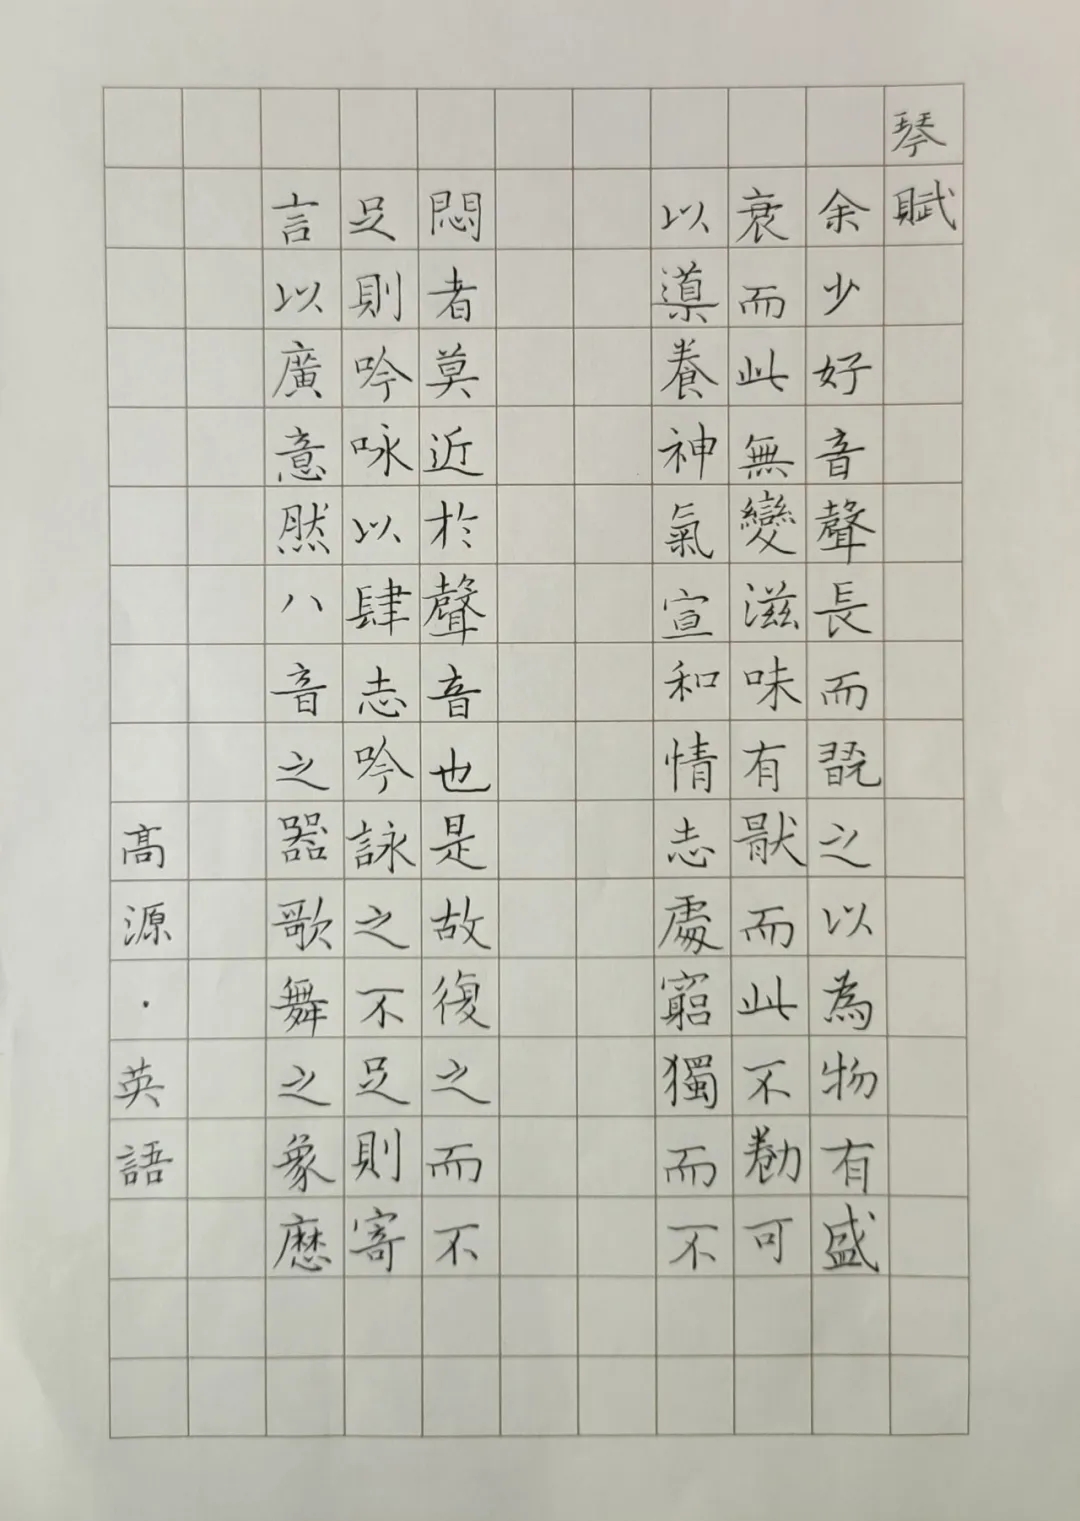 琴賦
余少好音聲長而翫之以為物有盛
衰而此無變滋味有猒而此不勌可
以導養神氣宣和情志處窮獨而不
悶者莫近於聲音也是故復之而不
足則吟咏以肆志吟詠之不足則寄
言以廣意然八音之器歌舞之象歷
高源·英語